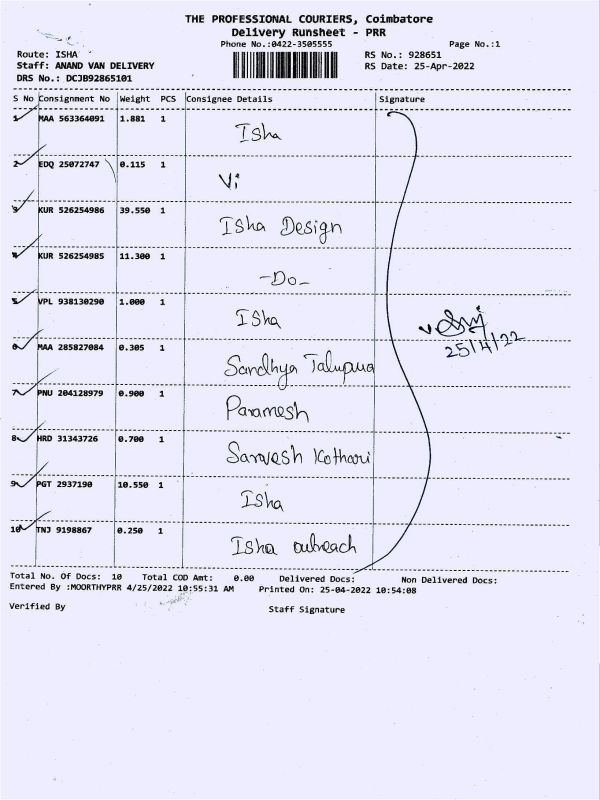 THE PROFESSIONAL COURIERS, Coimbatore
Delivery Runsheet - PRR
Phone No.:0422-3505555 Page No.:1
Route: ISHA RS No.: 928651
Staff: ANAND VAN DELIVERY RS Date: 25-Apr-2022
DRS No.: DCJB92865101
S No Consignment No Weight PCS Consignee Details Signature
1 MAA 563364091 1.881 1 Isha
2 EDQ 25072747 0.115 1 Vi
3 KUR 526254986 39.550 1 Isha Design
4 KUR 526254985 11.300 1 -Do-
5 VPL 938130290 1.000 1 Isha
6 MAA 285827084 0.305 1 Sandhya Talupura
7 PNU 204128979 0.900 1 Paramesh
8 HRD 31343726 0.700 1 Sarvesh Kothari
9 PGT 2937190 10.550 1 Isha
10 TNJ 9198867 0.250 1 Isha outreach
25/4/22
Total No. Of Docs: 10 Total COD Amt: 0.00 Delivered Docs: Non Delivered Docs:
Entered By :MOORTHYPRR 4/25/2022 10:55:31 AM Printed On: 25-04-2022 10:54:08
Verified By Staff Signature